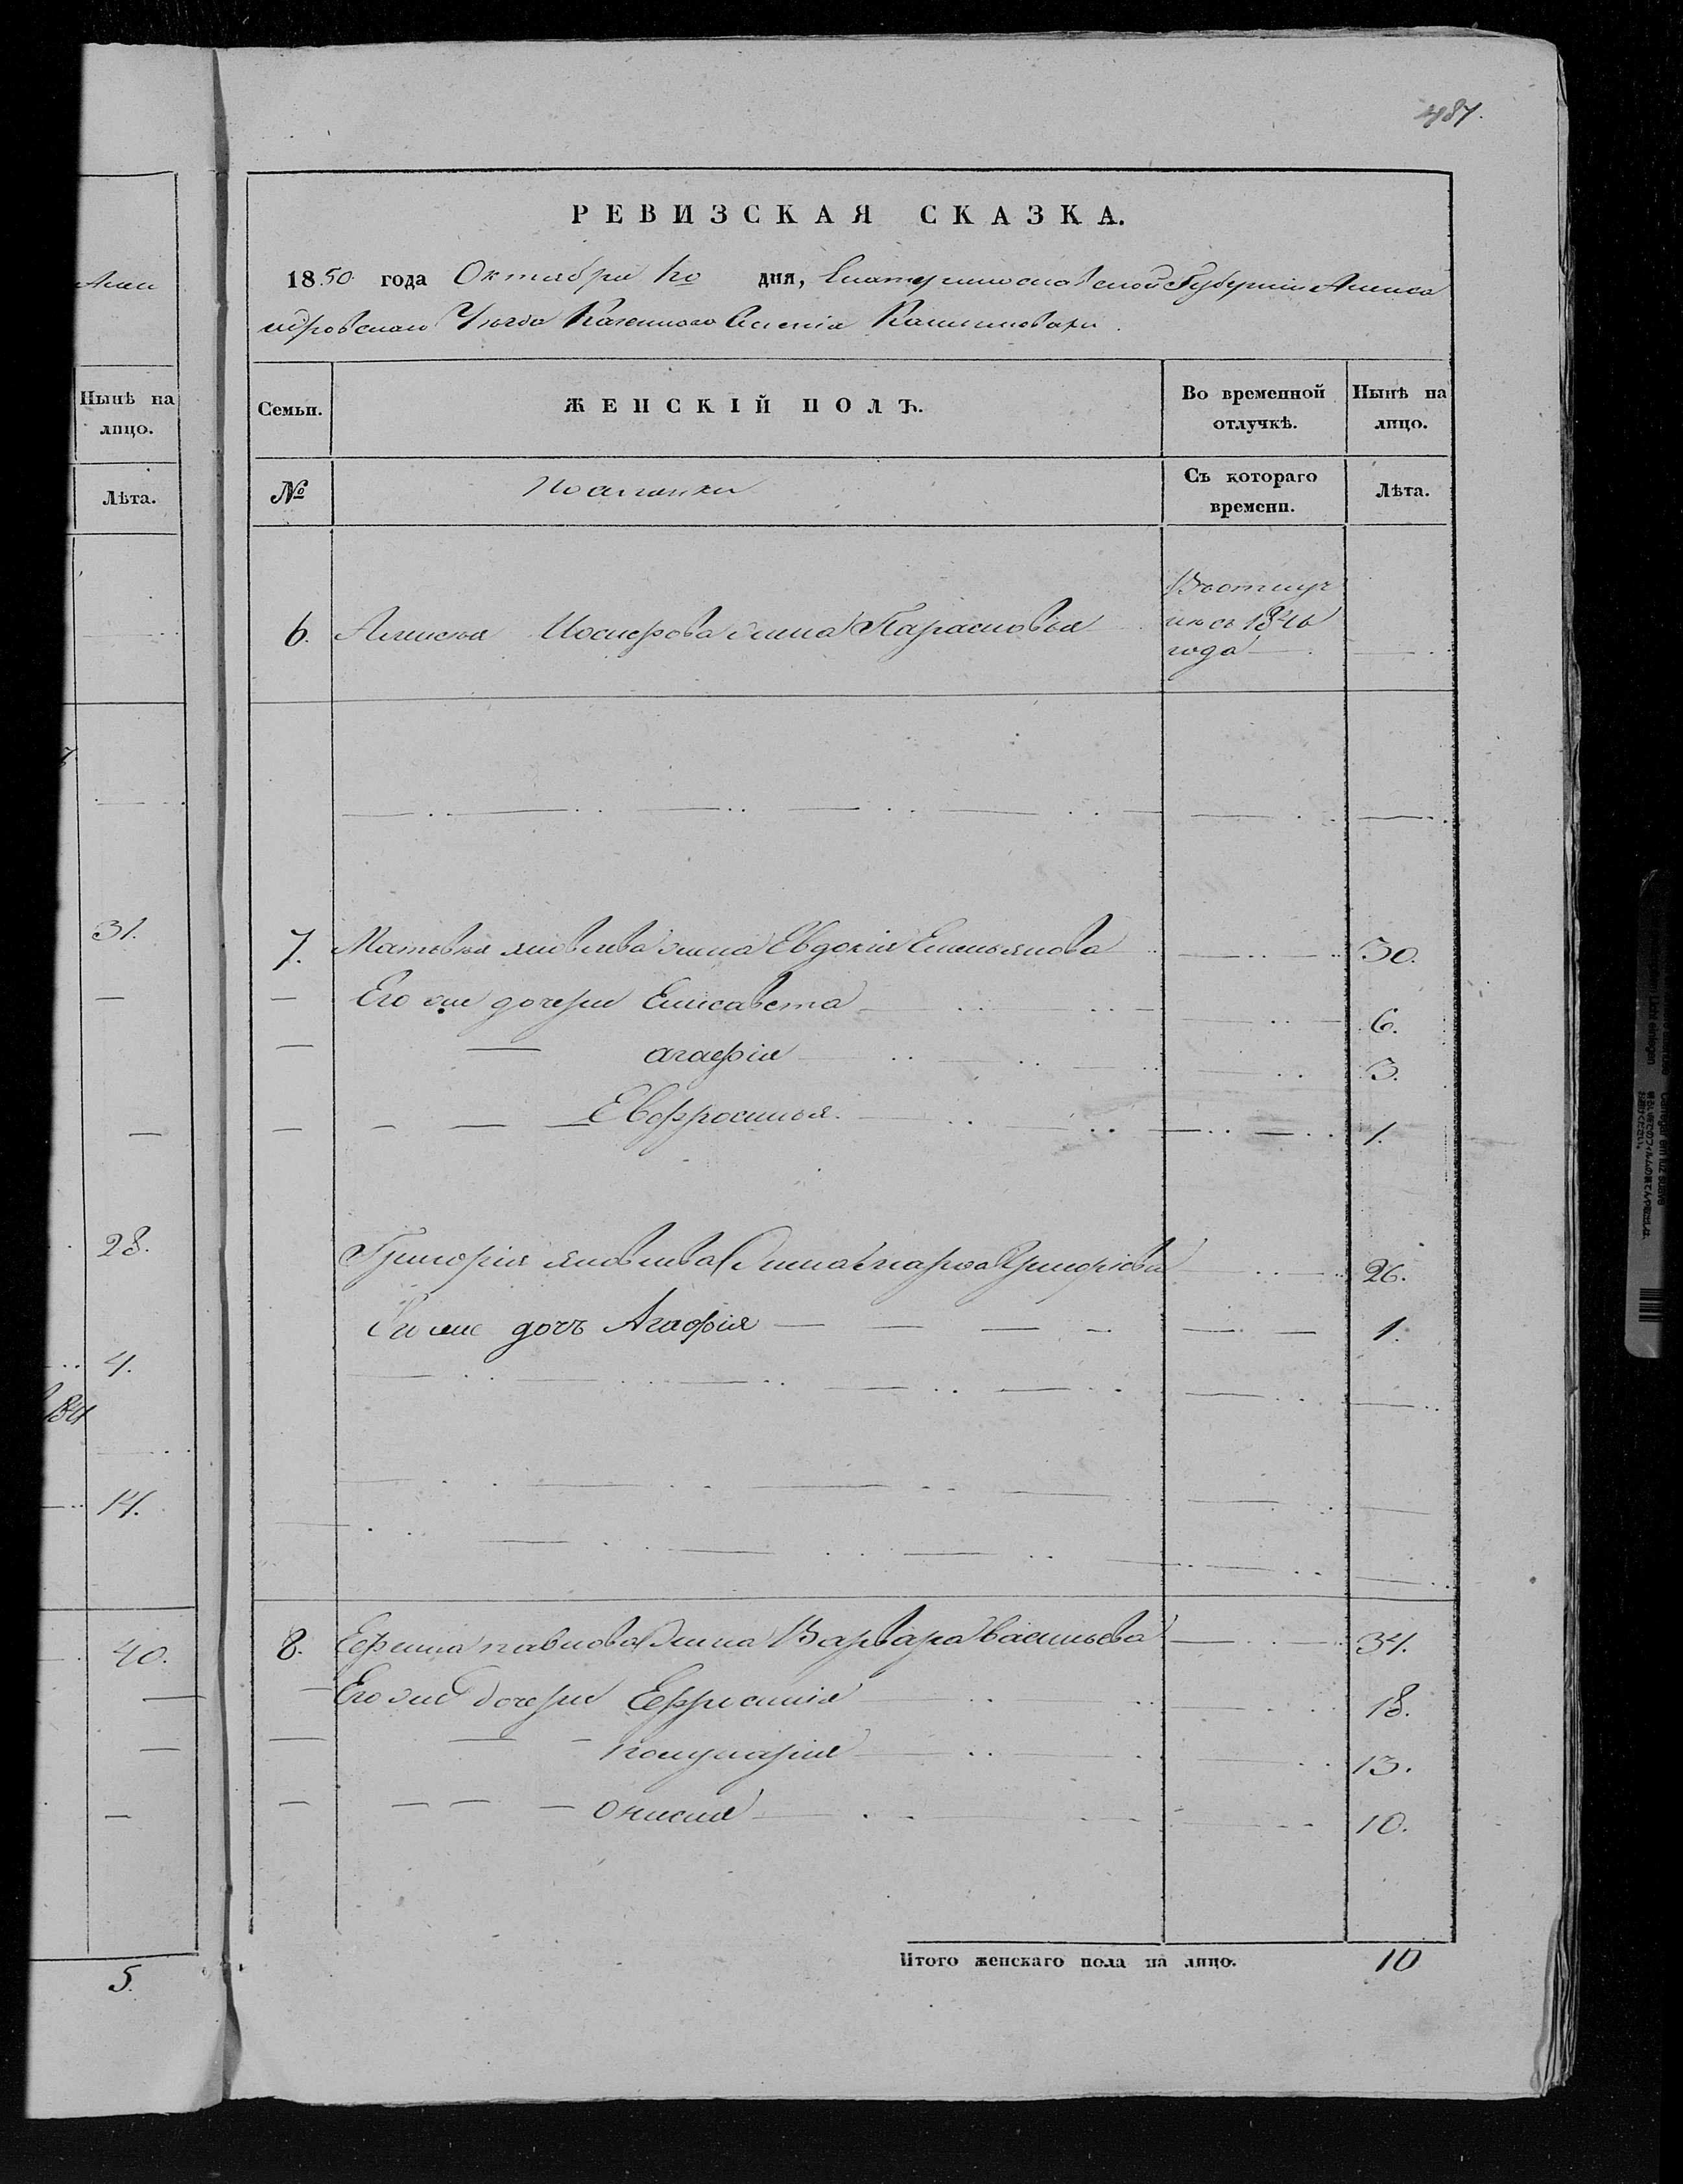 487.
Нынѣ на лицо.
Лѣта.
31.
28.
4.
14.
40.
5.
РЕВИЗСКАЯ СКАЗКА.
1850 года Октября дня, Екатеринославской Губерніи Алекса
ндровскаго Уѣзда Казеннаго Селенія
Семьи.
ЖЕНСКІЙ ПОЛЪ.
Во временной отлучкѣ.
Нынѣ на лицо.
№
Поселянки
Съ котораго времени.
Лѣта.
6. Алексѣя Иосифова жена Парасковья
Въ отлуч
кѣ съ 1846
года
7. Матвѣя Яковлева жена Евдокія Емельянова 30.
Его же дочери Елисавета 6.
агафія 3.
Евфросинья 1.
Григорія Яковлева жена Григорьева 26.
Его же дочь Агафія 1.
8. Ефима павлова жена Варвара васильева 34.
Его же дочери Ефросинія 18.
13.
10.
Итого женскаго пола на лицо. 10